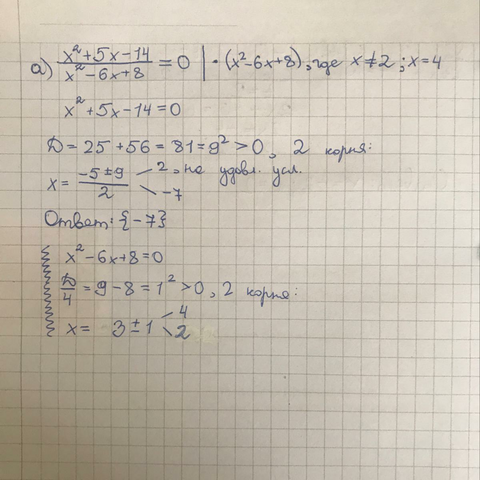 а) x²+5x-14 / x²-6x+8 = 0 | · (x²-6x+8), где x≠2; x=4
x²+5x-14=0
D = 25+56=81=9²>0, 2 корня:
x = -5±9 / 2 2, не удовл. усл.
-7
Ответ: {-7}
x²-6x+8=0
D/4 = 9-8=1²>0, 2 корня:
x = 3±1 4
2